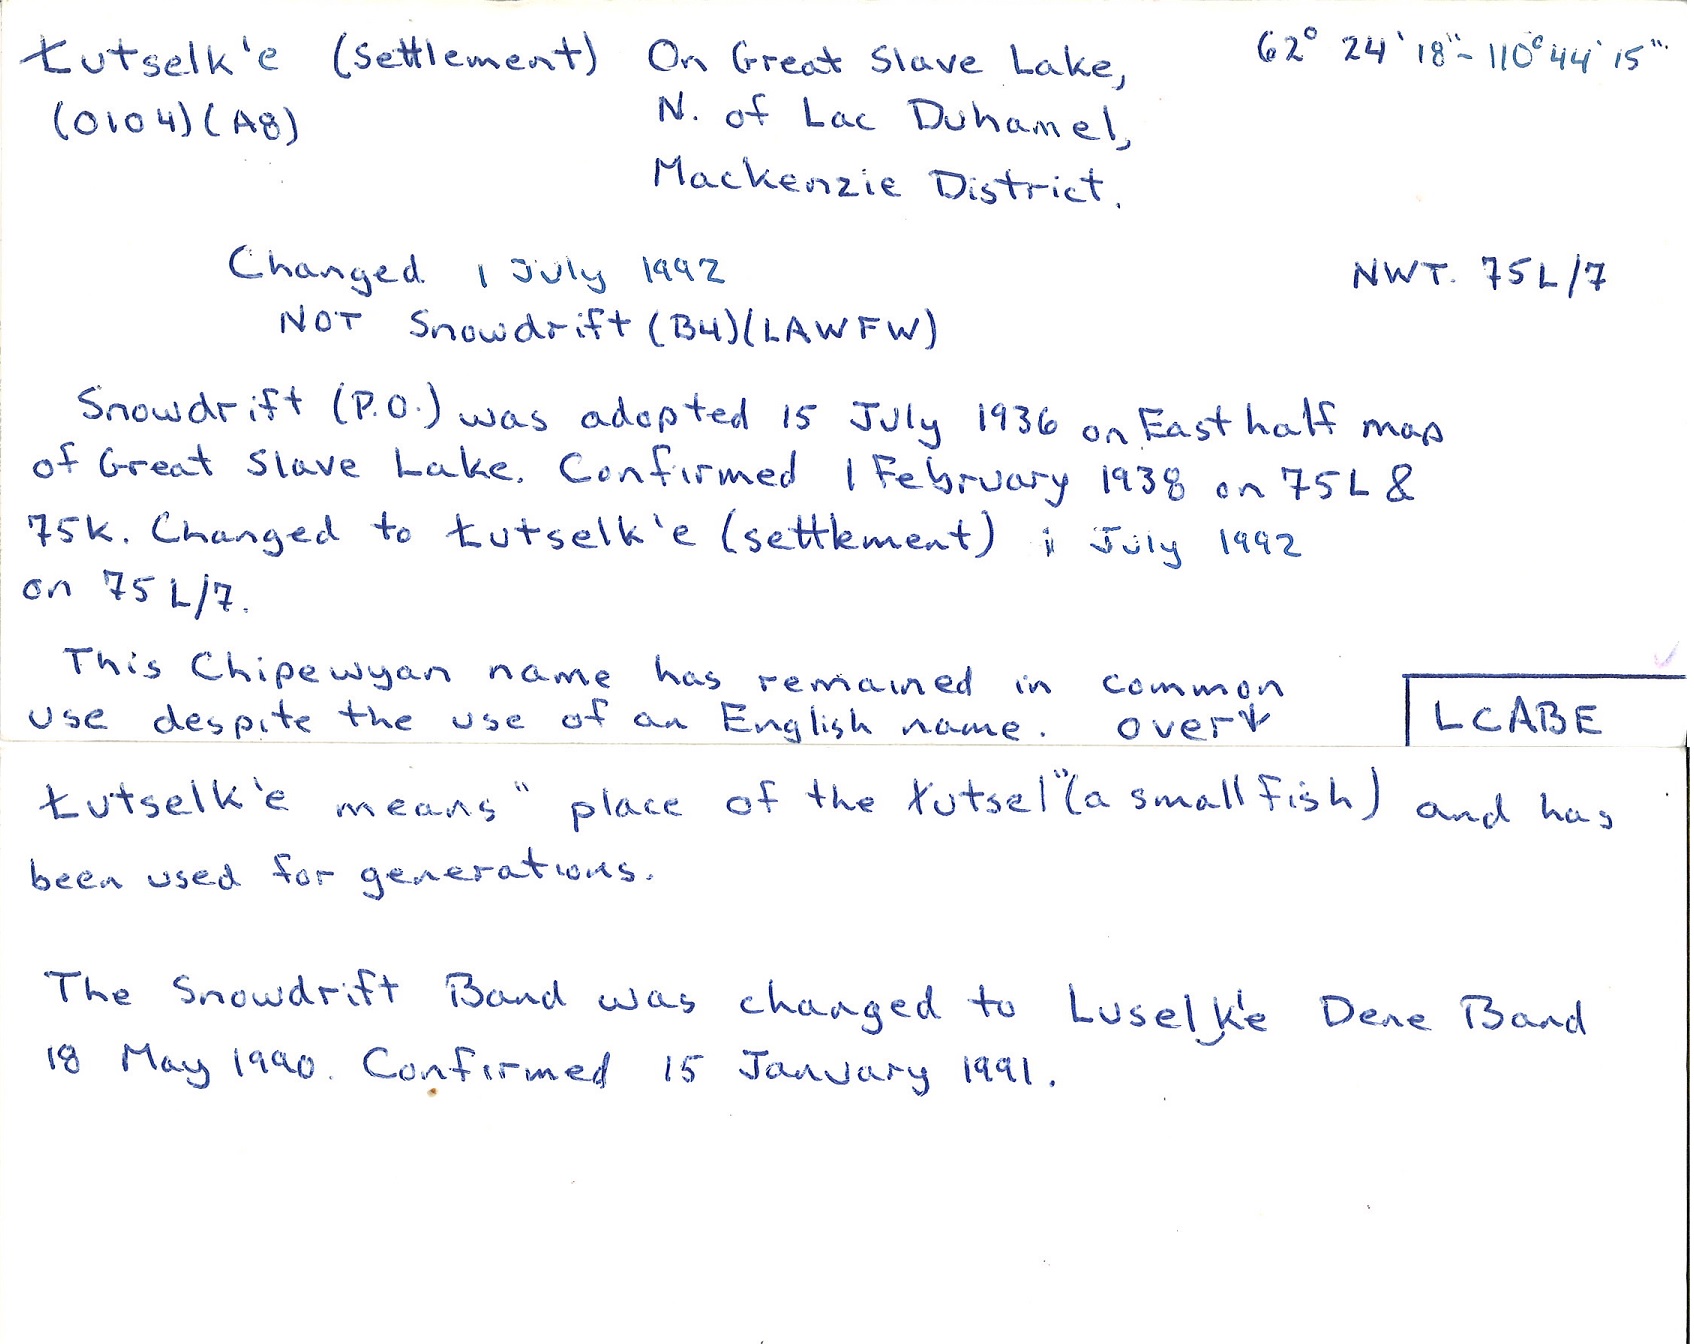 Łutselk'e (settlement) On Great Slave Lake, 62° 24' 18" - 110° 44' 15"
(0104)(A8) N. of Lac Duhamel,
Mackenzie District.
Changed 1 July 1992 NWT. 75L/7
NOT Snowdrift (B4)(LAWFW)
Snowdrift (P.O.) was adopted 15 July 1936 on East half map
of Great Slave Lake. Confirmed 1 February 1938 on 75L &
75K. Changed to Łutselk'e (settlement) 1 July 1992
on 75L/7.
This Chipewyan name has remained in common
use despite the use of an English name. over↓ LCABE
Łutselk'e means "place of the łutsel" (a small fish) and has
been used for generations.
The Snowdrift Band was changed to Luselk'e Dene Band
18 May 1990. Confirmed 15 January 1991.